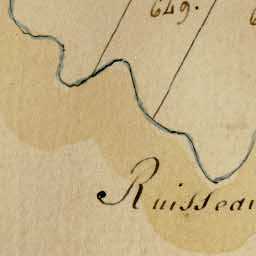 649.
Ruisseau